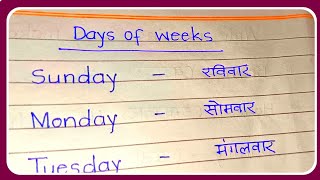 Days of weeks
Sunday - रविवार
Monday - सोमवार
Tuesday - मंगलवार